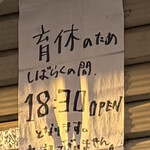 育休のため
しばらくの間、
18:30 OPEN
となります。